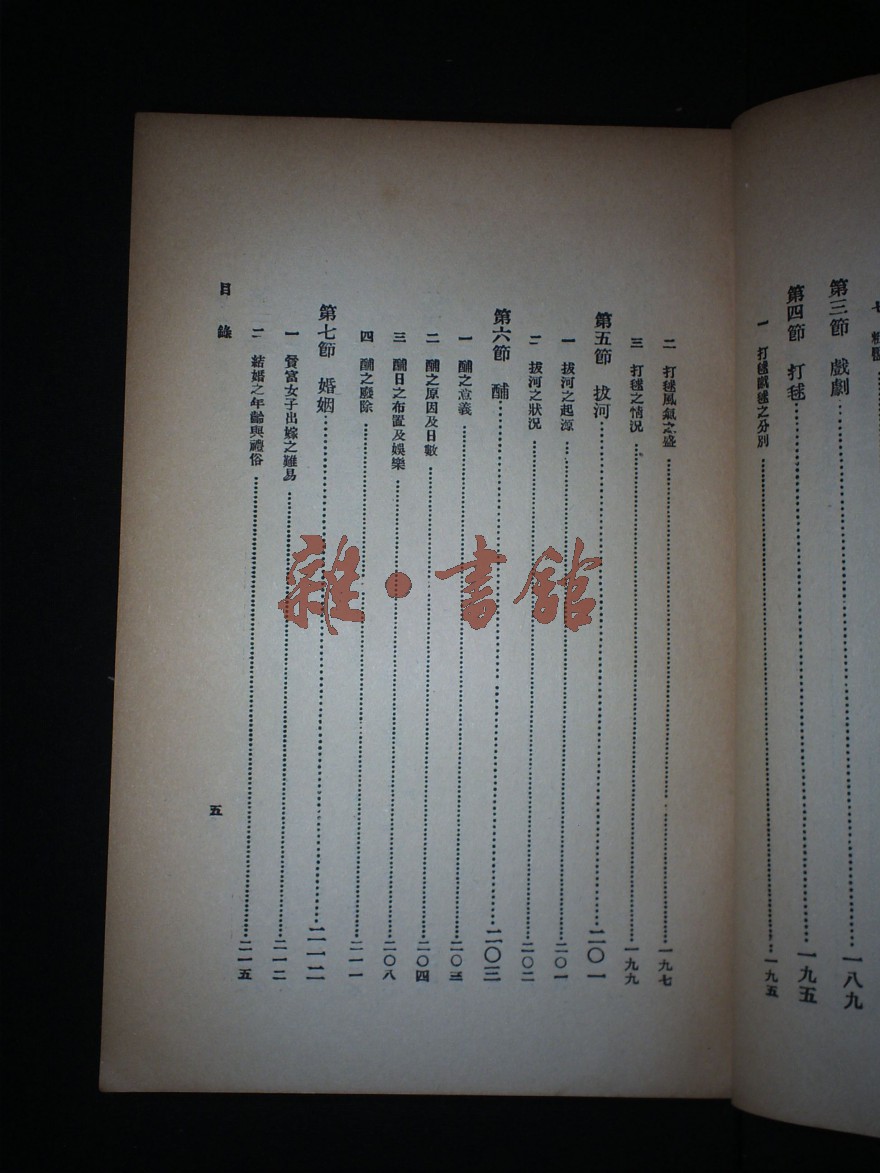 第三節 戲劇……一八九
第四節 打毬……一九五
一 打毬戲毬之分別……一九五
二 打毬風氣之盛……一九七
三 打毬之情況……一九九
第五節 拔河……二〇一
一 拔河之起源……二〇一
二 拔河之狀況……二〇二
第六節 酺……二〇三
一 酺之意義……二〇三
二 酺之原因及日數……二〇四
三 酺日之布置及娛樂……二〇八
四 酺之廢除……二一一
第七節 婚姻……二一二
一 貧富女子出嫁之難易……二一二
二 結婚之年齡與禮俗……二一五
目錄
五
雜·書館